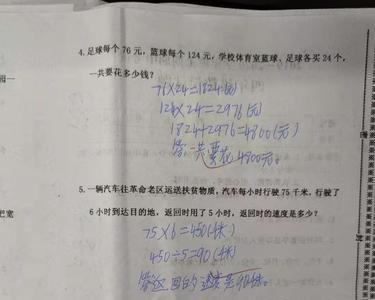 4. 足球每个 76 元，篮球每个 124 元，学校体育室篮球、足球各买 24 个，
一共要花多少钱？
76×24=1824(元)
124×24=2976(元)
1824+2976=4800(元)
答:一共要花4800元。
5. 一辆汽车往革命老区运送扶贫物质，汽车每小时行驶 75 千米，行驶了
6 小时到达目的地，返回时用了 5 小时，返回时的速度是多少？
75×6=450(千米)
450÷5=90(千米)
答:返回的速度是90千米。